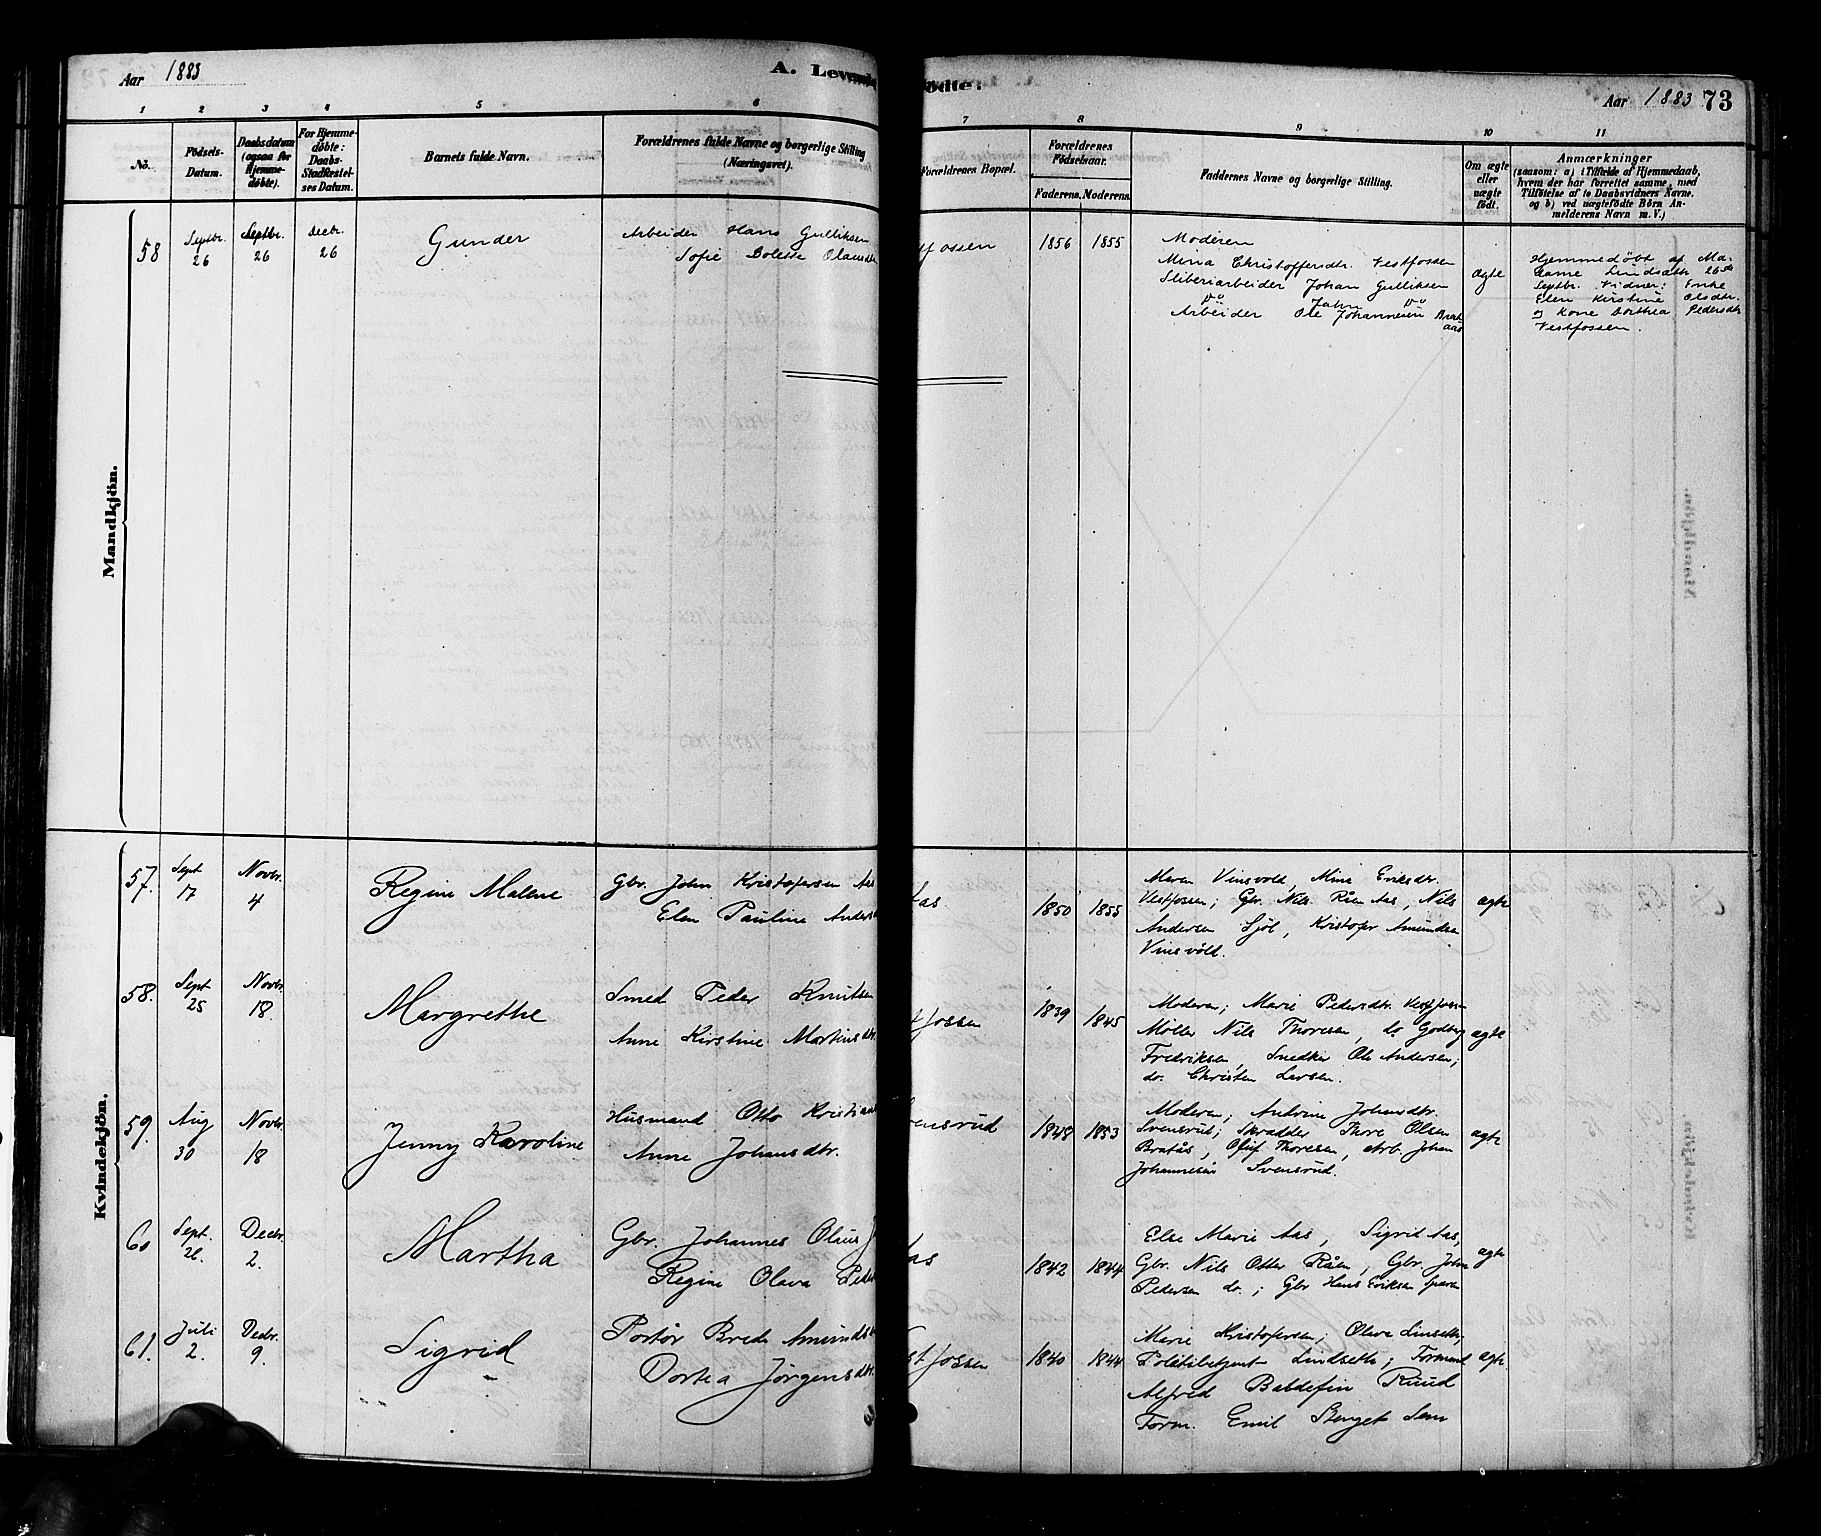 Aar 1883
A. Levende
fødte.
Aar 1883 73
1 2 3 4 5 6 7 8 9 10 11
No.
Fødsels-
Datum.
Daabsdatum
(ogsaa for
Hjemme-
døbte).
For Hjemme-
døbte:
Daabs-
Stadfæstel-
ses Datum.
Barnets fulde Navn.
Forældrenes fulde Navne og borgerlige Stilling
(Næringsvei).
Forældrenes Bopæl.
Forældrenes
Fødselsaar.
Faderens. Moderens.
Faddernes Navne og borgerlige Stilling.
Om ægte
eller
uægte
født.
Anmærkninger
(saasom: a) i Tilfælde af Hjemmedaab,
hvem der har forrettet samme, med
Tilføielse af to Daabsvidners Navne.
og b) ved uægtefødte Børn An-
melderens Navn m. V.)
Mandkjön.
58
Septbr.
26
Septbr.
26
Decbr.
26
Gunder
Arbeider Hans Gulliksen
Sofie Bolette Olausdtr
fossen
1856 1855
Moderen
Mina Christoffersdtr. Vestfossen
Sliberiarbeider Johan Gulliksen
do Jahn do
Arbeider Ole Johannesen Brat
aas
ægte
Hjemmedøbt af Ma-
dame Lindsæth 26de
Septbr. Vidner: Enke
Elen Kirstine Olsdtr.
og Kone Dorthea Pedersdtr
Vestfossen.
Kvindekjön.
57.
Sept
17
Novbr.
4
Regine Malene
Gbr. John Kristofersen Aas
Elen Pauline Anders
Aas
1850 1855
Maren Vinsvold, Mina Eriksdtr.
Vestfossen; Gbr. Nils Råen Aas, Nils
Andersen Sjöl, Kristofer Amundsen
Vinsvold.
ægte
58.
Sept
25
Novbr.
18.
Margrethe
Smed Peder Knutsen
Anne Kirstine Martinsdtr.
stfossen
1839 1845
Moderen; Marie Pedersdtr. Vestfossen
Møller Nils Thoresen, do Godberg
Fredriksen, Snedker Ole Andersen;
do. Christen Larsen.
ægte
59.
Aug
30
Novbr.
18
Jenny Karoline
Husmand Otto Kristian
Anne Johansdtr.
vensrud
1848 1853
Moderen; Andrine Johansdtr.
Svensrud; Skrædder Thore Olsen
Bratås, Oluf Thoresen, Arb. Johan
Johannesen Svensrud.
ægte
60
Sept.
26.
Decbr.
2.
Martha
Gbr. Johannes Olaus
Regine Olava Peder
Aas
1842 1844
Else Marie Aas, Sigrid Aas,
Gbr. Nils Otter Råen, Gbr. John
Pedersen do.; Gbr Hans Eriksen
ægte
61.
Juli
2.
Decbr.
9.
Sigrid
Portør Brede Amunds
Dortea Jørgensdtr.
stfossen
1840 1844
Marie Kristofersen; Olava Linseth,
Politibetjent Lindseth; Formand
Alfred Ruud
Form. Emil Sem
ægte